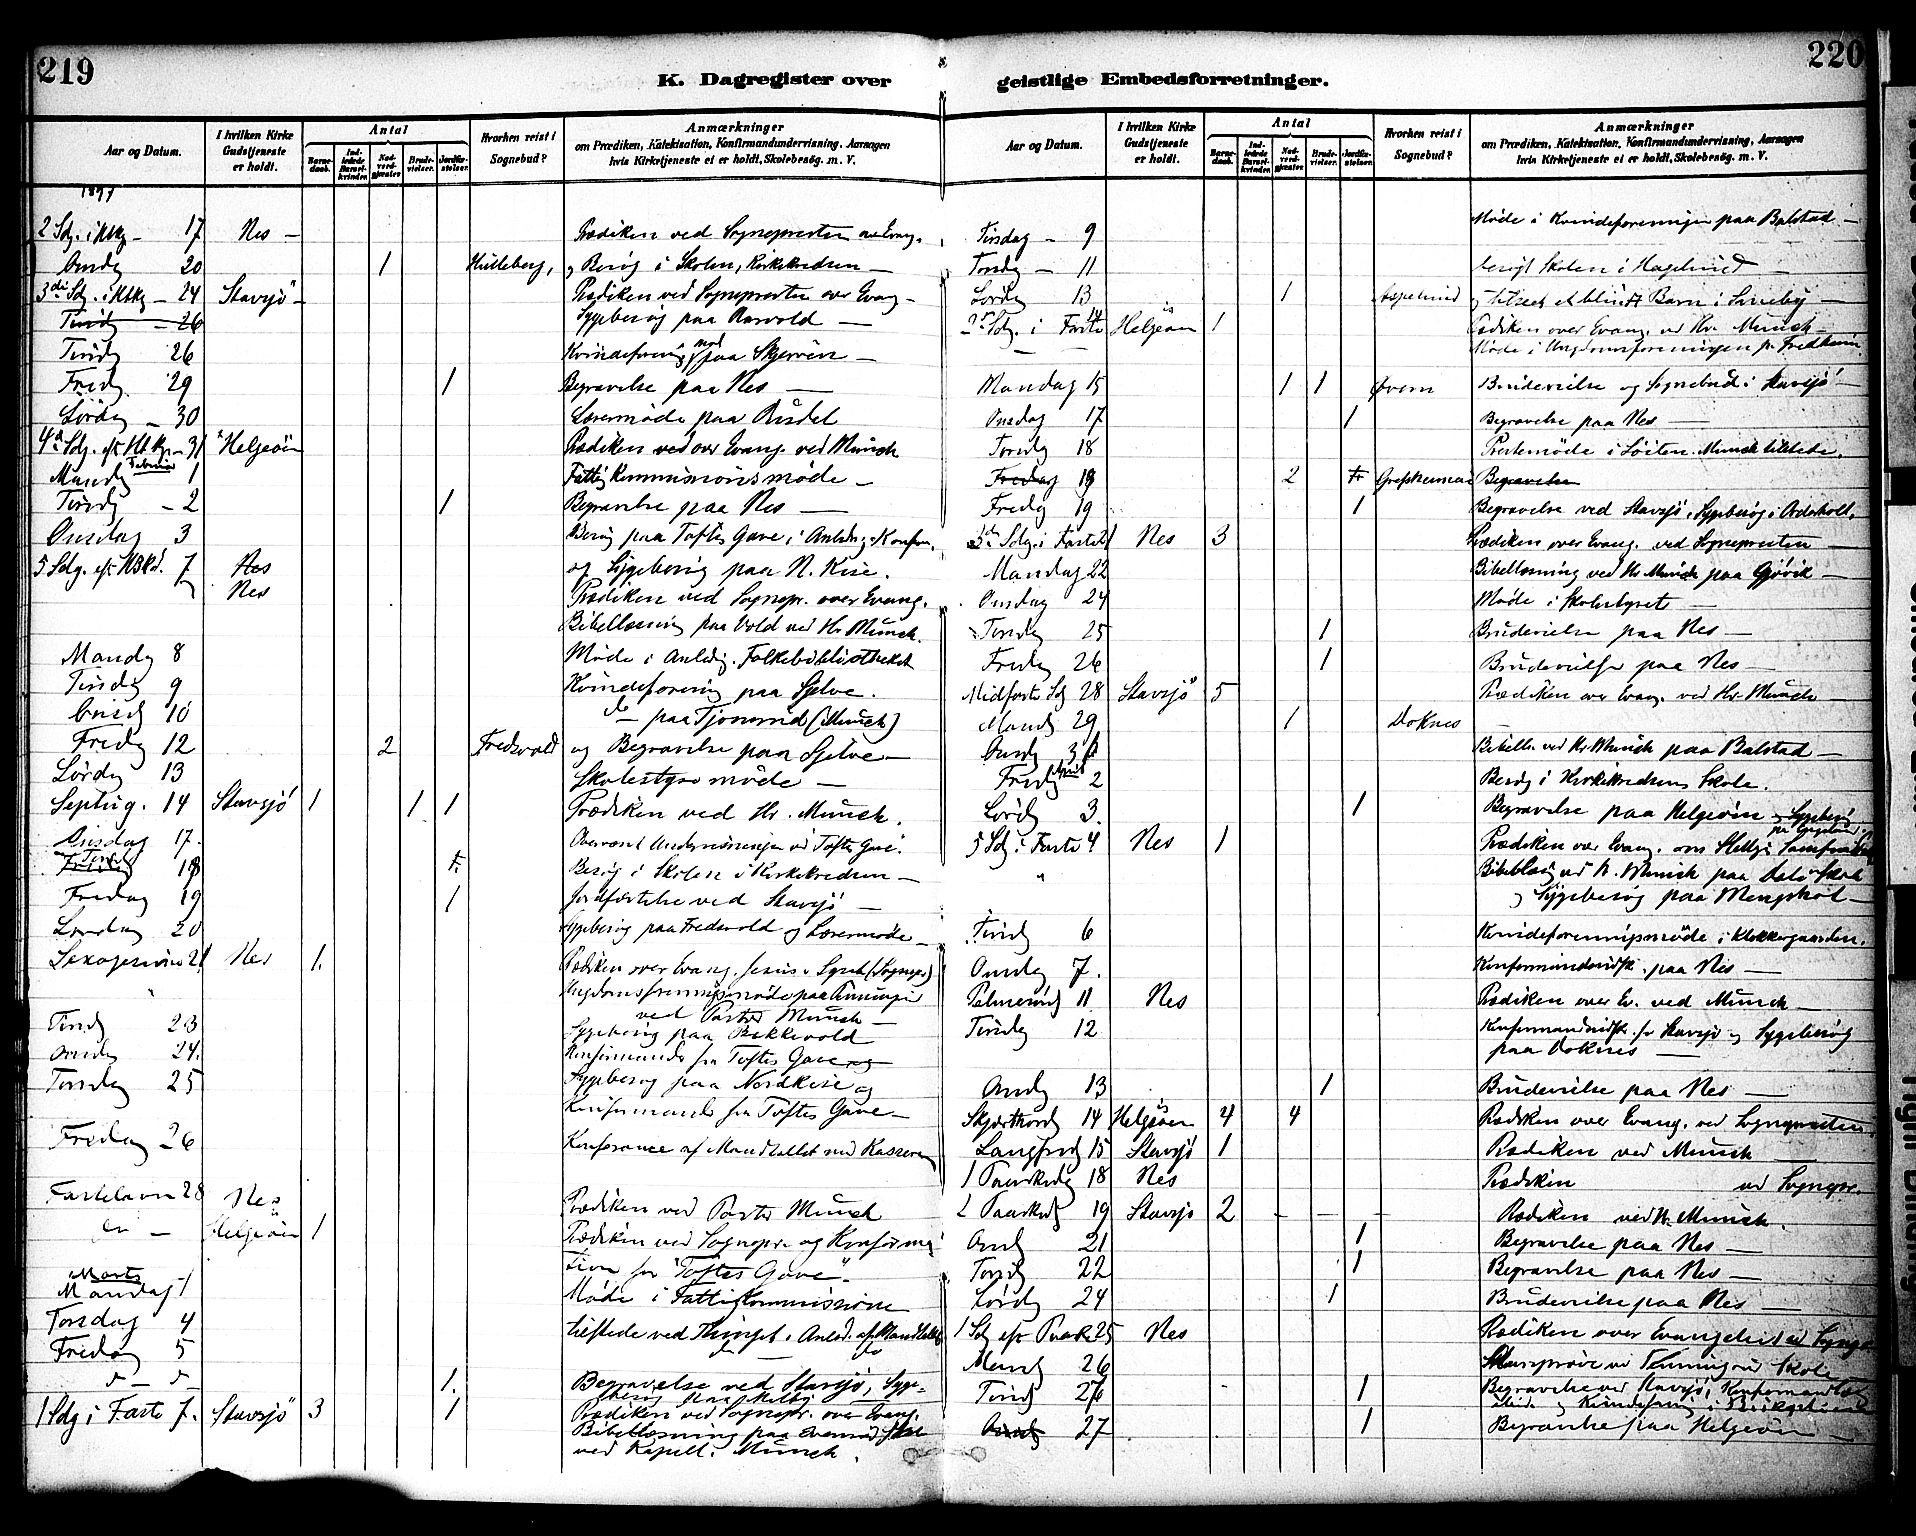 219
K. Dagregister over
Aar og Datum.
I hvilken Kirke Gudstjeneste er holdt.
Antal
Barnedaab.
Indledede Barselkvinder.
Nadverdgjæster.
Brudevielser.
Jordfæstelser.
Hvorhen reist i Sognebud?
Anmærkninger
om Prædiken, Katekisation, Konfirmandundervisning. Aarsagen
hvis Kirketjeneste ei er holdt, Skolebesög. m. V.
1897
2 Sdg. i Htkg - 17 Nes - Prædiken ved Sognepresten over Evang.
Onsdg 20 1 Hulleberg, og Besög i Skolen, Kirkekredsen -
3die Sdg. i Htkg - 24 Stavsjö - Prædiken ved Sognepresten over Evang -
Tirsdg - 26 Sygebesög paa -
Tirsdg 26 Kvindeforening paa Skjerven -
Fredg. 29 1 Begravelse paa Nes -
Lördg - 30 Lærermöde paa
4de Sdg. eft Htkg - 31 Helgeöen Prædiken ved over Evang. ved Munch
Februar
Mandg 1 Fattigkommissionsmöde -
Tirsdg - 2 1 Begravelse paa Nes -
Onsdag 3 Besög paa Toftes Gave i Anledng. Konfirm.
5 Sdg. eft H3Kd. 7 Nes og Sygebesög paa N. Kise.
Nes Prædiken ved Sognepr. over Evang.
Bibellæsning paa Vold ved Hr Munch.
Mandg 8 Möde i Anledg. Folkebibliotheket
Tirsdg 9 Kvindeforening paa Sjelve.
Onsdg 10 do - paa Tjernsrud (Munch)
Fredg 12 2 Fredsvold og Begravelse paa Sjelve -
Lördg 13 Skolestyremöde -
Septug. 14 Stavsjö 1 1 1 Prædiken ved Hr. Munch.
Onsdag 17. Overvaret Undervisningen ved Toftes Gave.
Torsdg 18 Besög i Skolen i Kirkekredsen -
Fredag 19 1 Jordfæstelse ved Stavsjö -
Lördag 20 Sygebesög paa Fredsvold og Lærermöde -
Sexagesima 21 Nes 1. Prædiken over Evang. Jesus (Sognepr.)
Ungdomsforeningsmöde paa
ved Pastor Munch -
Tirsdg 23 Sygebesög paa Bakkevold
Onsdg 24. Konfirmander fra Toftes Gave og
Torsdg 25 Sygebesög paa Nordkise og
Konfirmander fra Toftes Gave -
Fredag 26 Konferance af Mandtallet med Kasseren
Fastelavn 28 Nes Prædiken ved Pastor Munch
do - Helgeöen 1 Prædiken ved Sognepr. og Konfirma
tion for "Toftes Gave".
Marts
Mandag 1 Möde i Fattigkommissionen
Torsdag 4 tilstede ved Thinget i Anled. af Mandtallet
Fredag 5 do - do
do - do 1. Begravelse ved Stavsjö, Syge-
besög paa
1 Sdg i Faste 7. Stavsjö 3 1 Prædiken ved Sognepr. over Evang.
Bibellæsning paa Skole
ved Kapell. Munch.
220
geistlige Embedsforretninger.
Aar og Datum.
I hvilken Kirke Gudstjeneste er holdt.
Antal
Barnedaab.
Indledede Barselkvinder.
Nadverdgjæster.
Brudevielser.
Jordfæstelser.
Hvorhen reist i Sognebud?
Anmærkninger
om Prædiken, Katekisation, Konfirmandundervisning. Aarsagen
hvis Kirketjeneste ei er holdt, Skolebesög. m. V.
Tirsdag - 9 Möde i Kvindeforeningen paa Balstad -
Torsdg - 11 besögt Skolen i Hagelund -
Lördg 13 1 og tilseet et blindt Barn i -
2den Sdg. i Faste 14 Helgeöen 1 Prædiken over Evang. ved Hr. Munch -
Möde i Ungdomsforeningen p. Fredheim
Mandag 15 1 1 Övern Brudevielse og Sognebud i Stavsjö -
Onsdag 17 1 Begravelse paa Nes -
Torsdg 18 Prestemöde i Löiten. Munch tilstede.
Fredag 19 2 Begravelse
Fredg 19 1 Begravelse ved Stavsjö, Sygebesög i
3die Sdg. i Faste 21 Nes 3 Prædiken over Evang. ved Sognepresten -
Mandag 22 Bibellæsning ved Hr Munch paa Gjövik -
Onsdag 24 Möde i Skolestyret -
Torsdg 25 1 Brudevielse paa Nes -
Fredag 26 1 Brudevielse paa Nes -
Midfaste Sdg 28 Stavsjö 5 Prædiken over Evang. ved Hr. Munch
Mandg 29 1 Doknes -
Onsdg 31 Bibell. ved Hr Munch paa Balstad -
Fredg April 2 Besög i Kirkekredsens Skole.
Lördg 3. 1 Begravelse paa Helgeöen og Sygebesög
5 Sdg. i Faste 4 Nes 1 Prædiken over Evang. om
" Bibellæsng ved Hr. Munch paa Skole
og Sygebesög paa Mengshol -
Tirsdg 6 Kvindeforeningsmöde i Klokkergaarden.
Onsdg 7. Konfirmandundsk. paa Nes -
Palmesöndg 11 Nes Prædiken over Ev. ved Munch -
Tirsdg 12 Konfirmandundsk. for Stavsjö og Sygebesög
paa Doknes -
Onsdg 13 1 Brudevielse paa Nes -
Skjærthorsd 14 Helgeöen 4 4 Prædiken over Evang. ved Sognepresten.
Langfredg 15 Stavsjö 1 Prædiken ved Munch -
1 Paaskedg 18 Nes Prædiken ved Sognepr.
2 Paaskedg 19 Stavsjö 2 - - - Prædiken ved Hr. Munch.
Onsdg 21 1 Begravelse paa Nes -
Torsdg 22 1 Begravelse paa Nes -
Lördg 24 1 Brudevielse paa Nes -
1 Sdg eft Paaske 25 Nes Prædiken over Evangeliet ved Sognepr
Mandg 26 ved Tenningen Skole
Tirsdg 27 1 Begravelse ved Stavsjö,
og Kvindeforeng i
Onsdg 27 1 Begravelse paa Helgeöen -